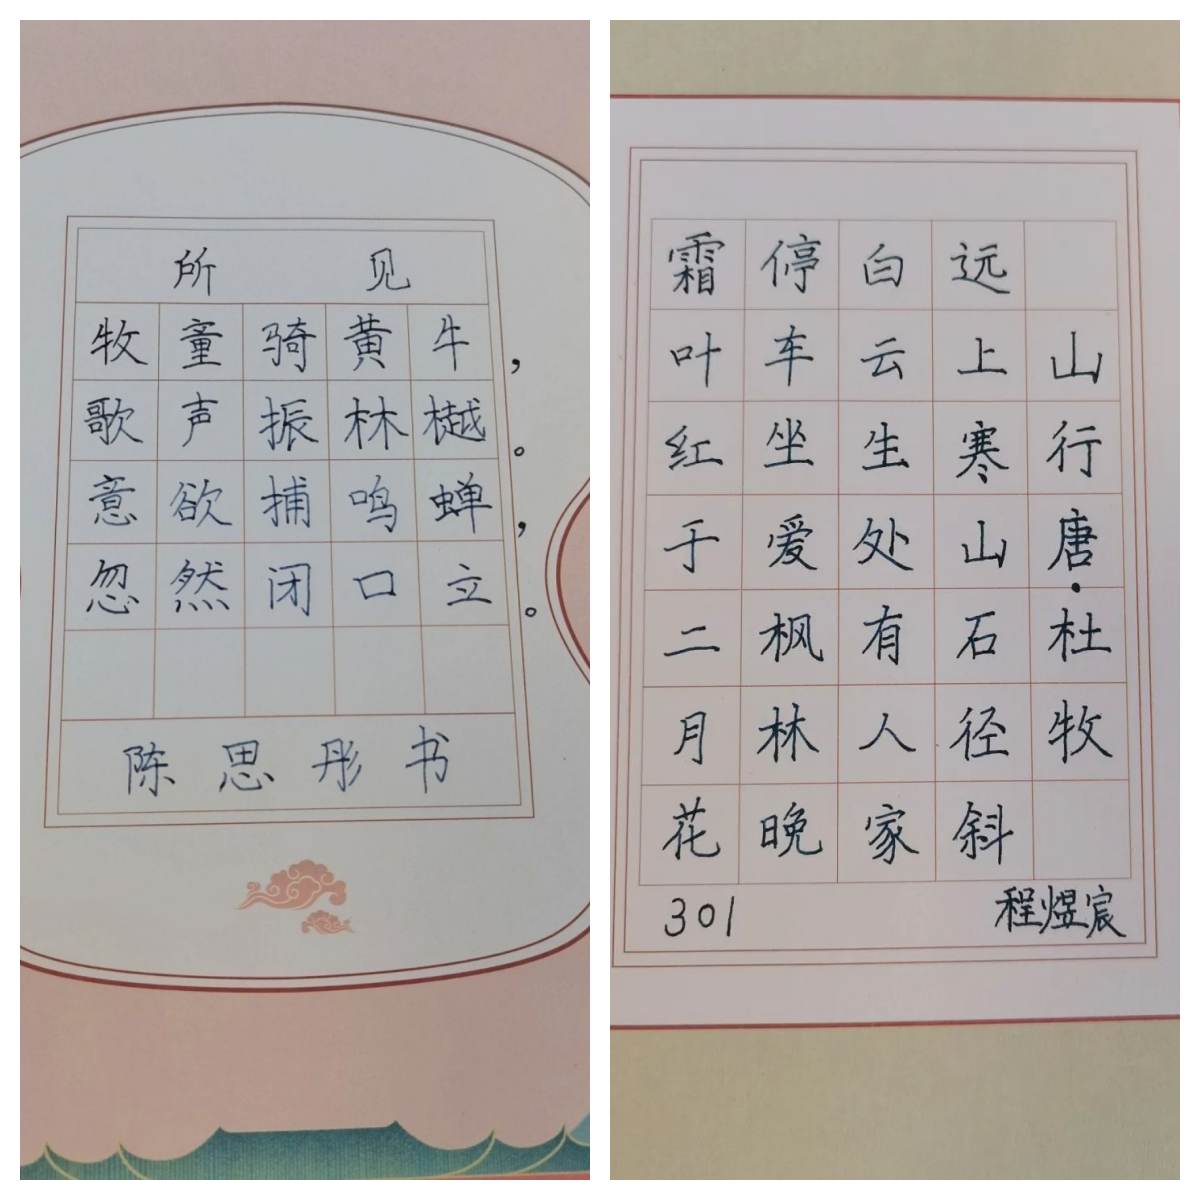 所见
牧童骑黄牛，
歌声振林樾。
意欲捕鸣蝉，
忽然闭口立。
陈思彤书
山行唐·杜牧
远上寒山石径斜
白云生处有人家
停车坐爱枫林晚
霜叶红于二月花
301 程煜宸